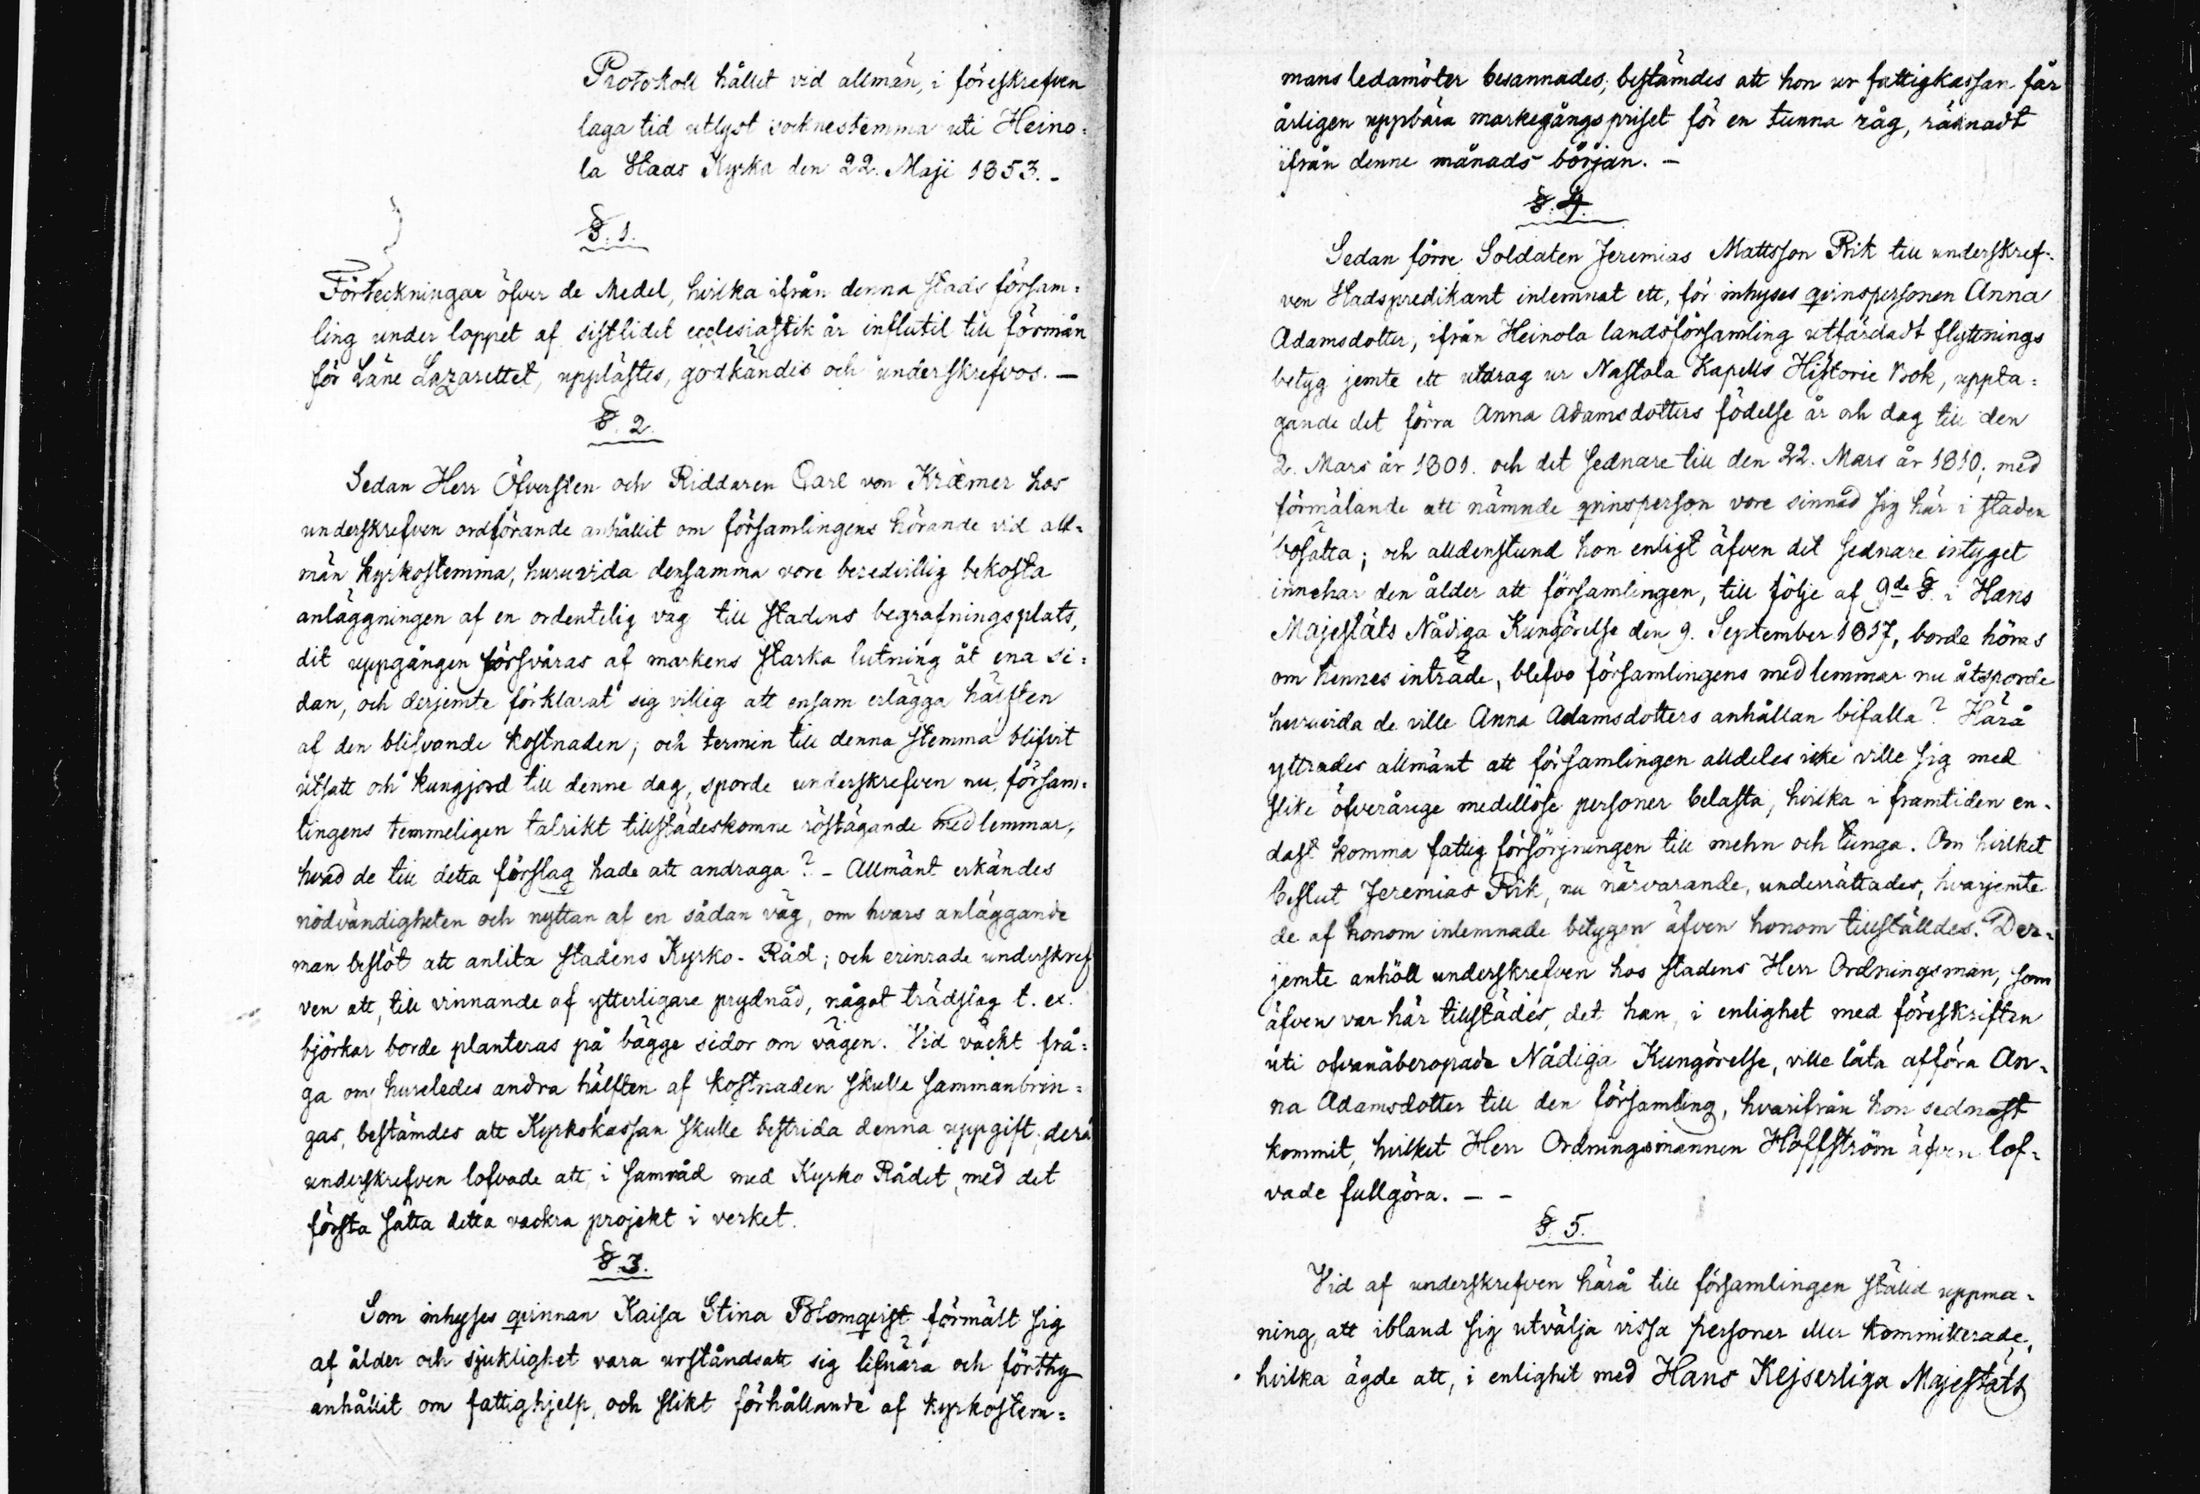 Protokoll hållet vid allmän, i föreskrefven
laga tid utlyst socknestemma uti Heino=
la Stads Kyrka den 22. Maji 1853. -
§. 1.
Förteckningar öfver de Medel, hvilka ifrån denna stads försam=
ling under loppet af sistlidet ecclesiastik år influtit till förmån
för Läne Lazarettet, upplästes, godkändes och underskrefvos. —
§. 2.
Sedan Herr Öfversten och Riddaren Carl von Kræmer hos
underskrefven ordförande anhållit om församlingens hörande vid all=
män kyrkostemma, huruvida densamma vore beredvillig bekosta
anläggningen af en ordentelig väg till stadens begrafningsplats,
dit uppgången försvåras af markens starka lutning åt ena si=
dan, och derjemte förklarat sig villig att ensam erlägga hälften
af den blifvande kostnaden; och termin till denna stemma blifvit
utsatt och kungjord till denne dag, sporde underskrefven nu försam=
lingens temmeligen talrikt tillstädeskomne röstägande medlemmar,
hvad de till detta förslag hade att andraga? - Allmänt erkändes
nödvändigheten och nyttan af en sådan väg, om hvars anläggande
man beslöt att anlita stadens Kyrko-Råd; och erinrade underskref
ven att, till vinnande af ytterligare prydnad, något trädslag t. ex.
björkar borde planteras på bägge sidor om vägen. Vid väckt frå=
ga om huruledes andra hälften af kostnaden skulle sammanbrin=
gas, bestämdes att Kyrkokassan skulle bestrida denna uppgift, derå
underskrefven lofvade att i samråd med Kyrko Rådet, med det
första sätta detta vackra projekt i verket.
§. 3.
Som inhyses qvinnan Kaisa Stina Blomqvist förmält sig
af ålder och sjuklighet vara urståndsatt sig lifnära och förthy
anhållit om fattighjelp, och slikt förhållande af kyrkostem=
mans ledamöter besannades, bestämdes att hon ur fattigkassan får
årligen uppbära markegångspriset för en tunna råg, räknadt
ifrån denne månads början. —
§. 4.
Sedan förre Soldaten Jeremias Mattsson Rik till underskref=
ven Stadspredikant inlemnat ett, för inhyses qvinspersonen Anna
Adamsdotter, ifrån Heinola landsförsamling utfärdadt flyttnings
betyg jemte ett utdrag ur Nastola Kapells Historie Bok, uppta=
gande det förra Anna Adamsdotters födelse år och dag till den
2. Mars år 1801. och det sednare till den 22. Mars år 1810; med
förmälande att nämnde qvinsperson vore sinnad sig här i staden
bosätta; och alldenstund hon enligt äfven det sednare intyget
innehar den ålder att församlingen, till följe af 9de §. i Hans
Majestäts Nådiga Kungörelse den 9. September 1817, borde höras
om hennes inträde, blefvo församlingens medlemmar nu åtsporde
huruvida de ville Anna Adamsdotters anhållan bifalla? Härå
yttrades allmänt att församlingen alldeles icke ville sig med
slike öfverårige medellöse personer belasta, hvilka i framtiden en=
dast komma fattig försörjningen till mehn och tunga. Om hvilket
beslut Jeremias Rik, nu närvarande, underrättades, hvarjemte
de af honom inlemnade betygen äfven honom tillställdes. Der=
jemte anhöll underskrefven hos stadens Herr Ordningsman, som
äfven var här tillstädes, det han, i enlighet med föreskriften
uti ofvanåberopade Nådiga Kungörelse, ville låta afföra An=
na Adamsdotter till den församling, hvarifrån hon sednast
kommit, hvilket Herr Ordningsmannen Höffström äfven lof=
vade fullgöra. — -
§. 5.
Vid af underskrefven härå till församlingen ställd uppma=
ning, att ibland sig utvälja vissa personer eller kommitterade,
hvilka ägde att, i enlighet med Hans Kejserliga Majestäts